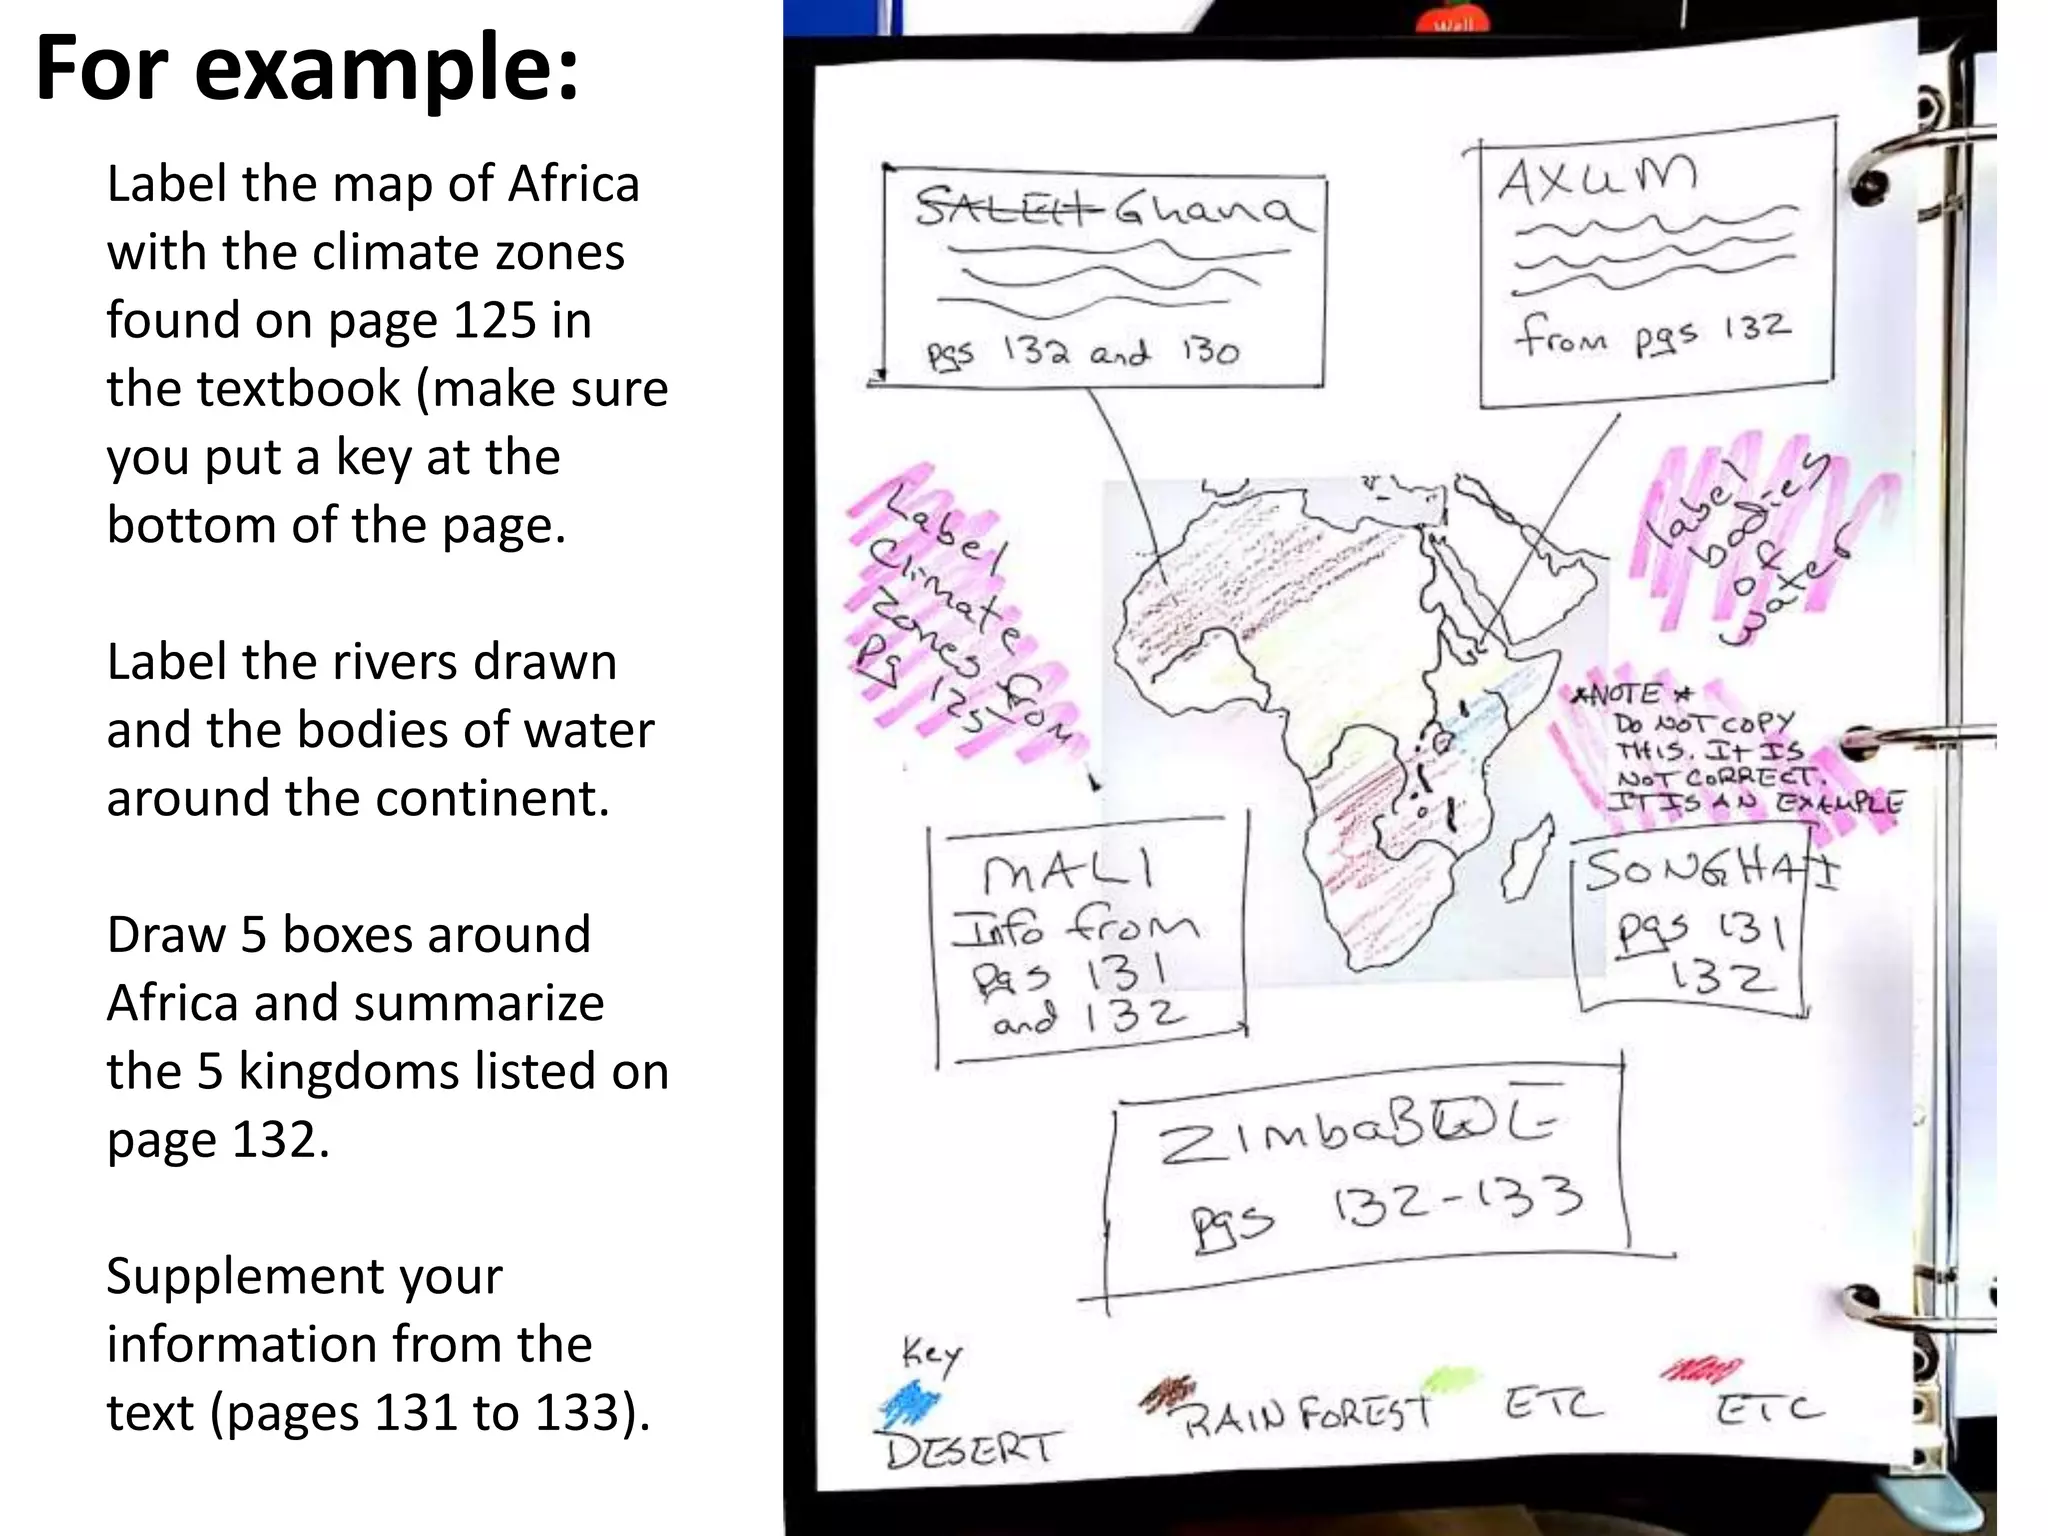 For example:
Label the map of Africa
with the climate zones
found on page 125 in
the textbook (make sure
you put a key at the
bottom of the page.
Label the rivers drawn
and the bodies of water
around the continent.
Draw 5 boxes around
Africa and summarize
the 5 kingdoms listed on
page 132.
Supplement your
information from the
text (pages 131 to 133).
Well
SALEH Ghana
pgs 132 and 130
AXUM
from pgs 132
Label
Climate
Zones from
pg 125
label
bodies
of
water
*NOTE*
DO NOT COPY
THIS. It IS
NOT CORRECT.
IT IS AN EXAMPLE
MALI
Info from
pgs 131
and 132
SONGHAI
pgs 131
132
ZIMBABWE
pgs 132-133
Key
DESERT
RAIN FOREST
ETC
ETC